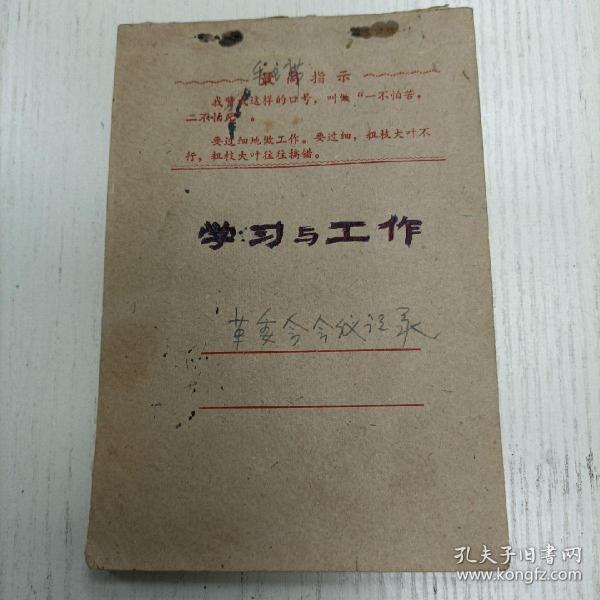 毛主席
最高指示
我赞成这样的口号，叫做“一不怕苦，
二不怕死”。
要过细地做工作。要过细，粗枝大叶不
行，粗枝大叶往往搞错。
学习与工作
革委会会议记录
孔夫子旧书网
www.kongfz.com